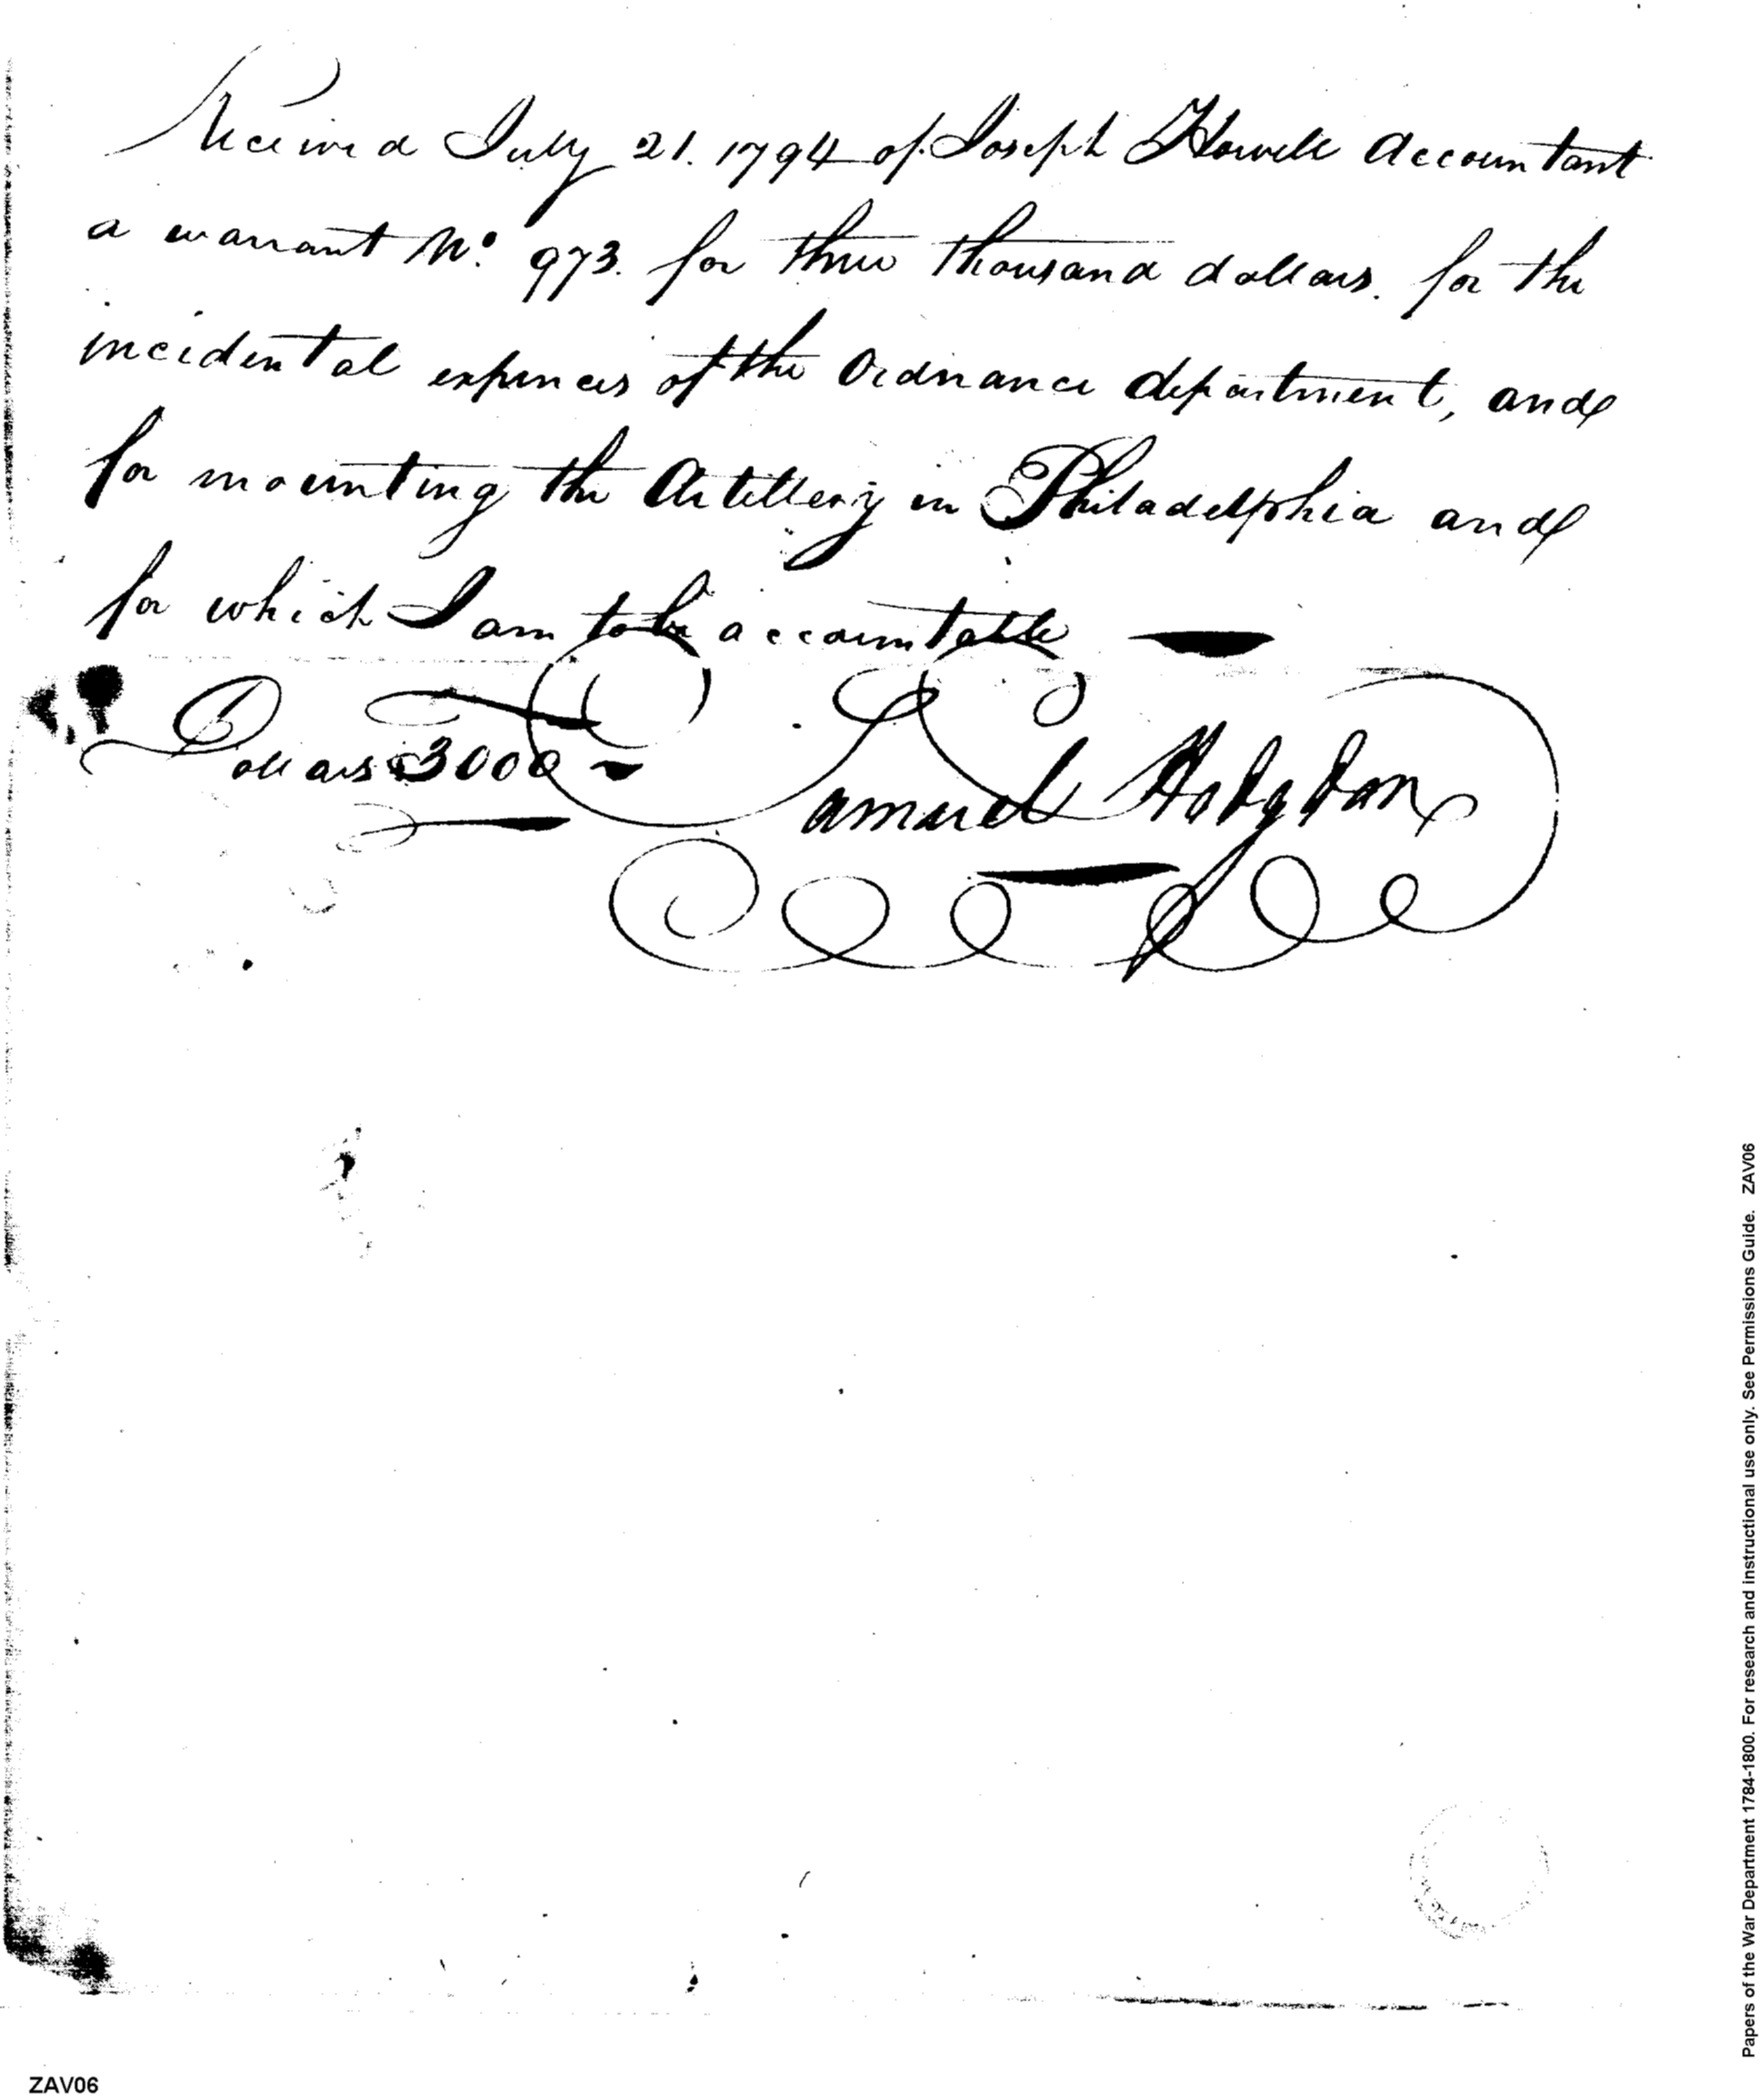 Received July 21. 1794 of Joseph Howell Accountant
a warrant No. 973. for three thousand dollars. for the
incidental expences of the Ordnance department, and
for mounting the Artillery in Philadelphia and
for which I am to be accountable
Dollars 3000
Samuel Hodgdon
Papers of the War Department 1784-1800. For research and instructional use only. See Permissions Guide. ZAV06
ZAV06